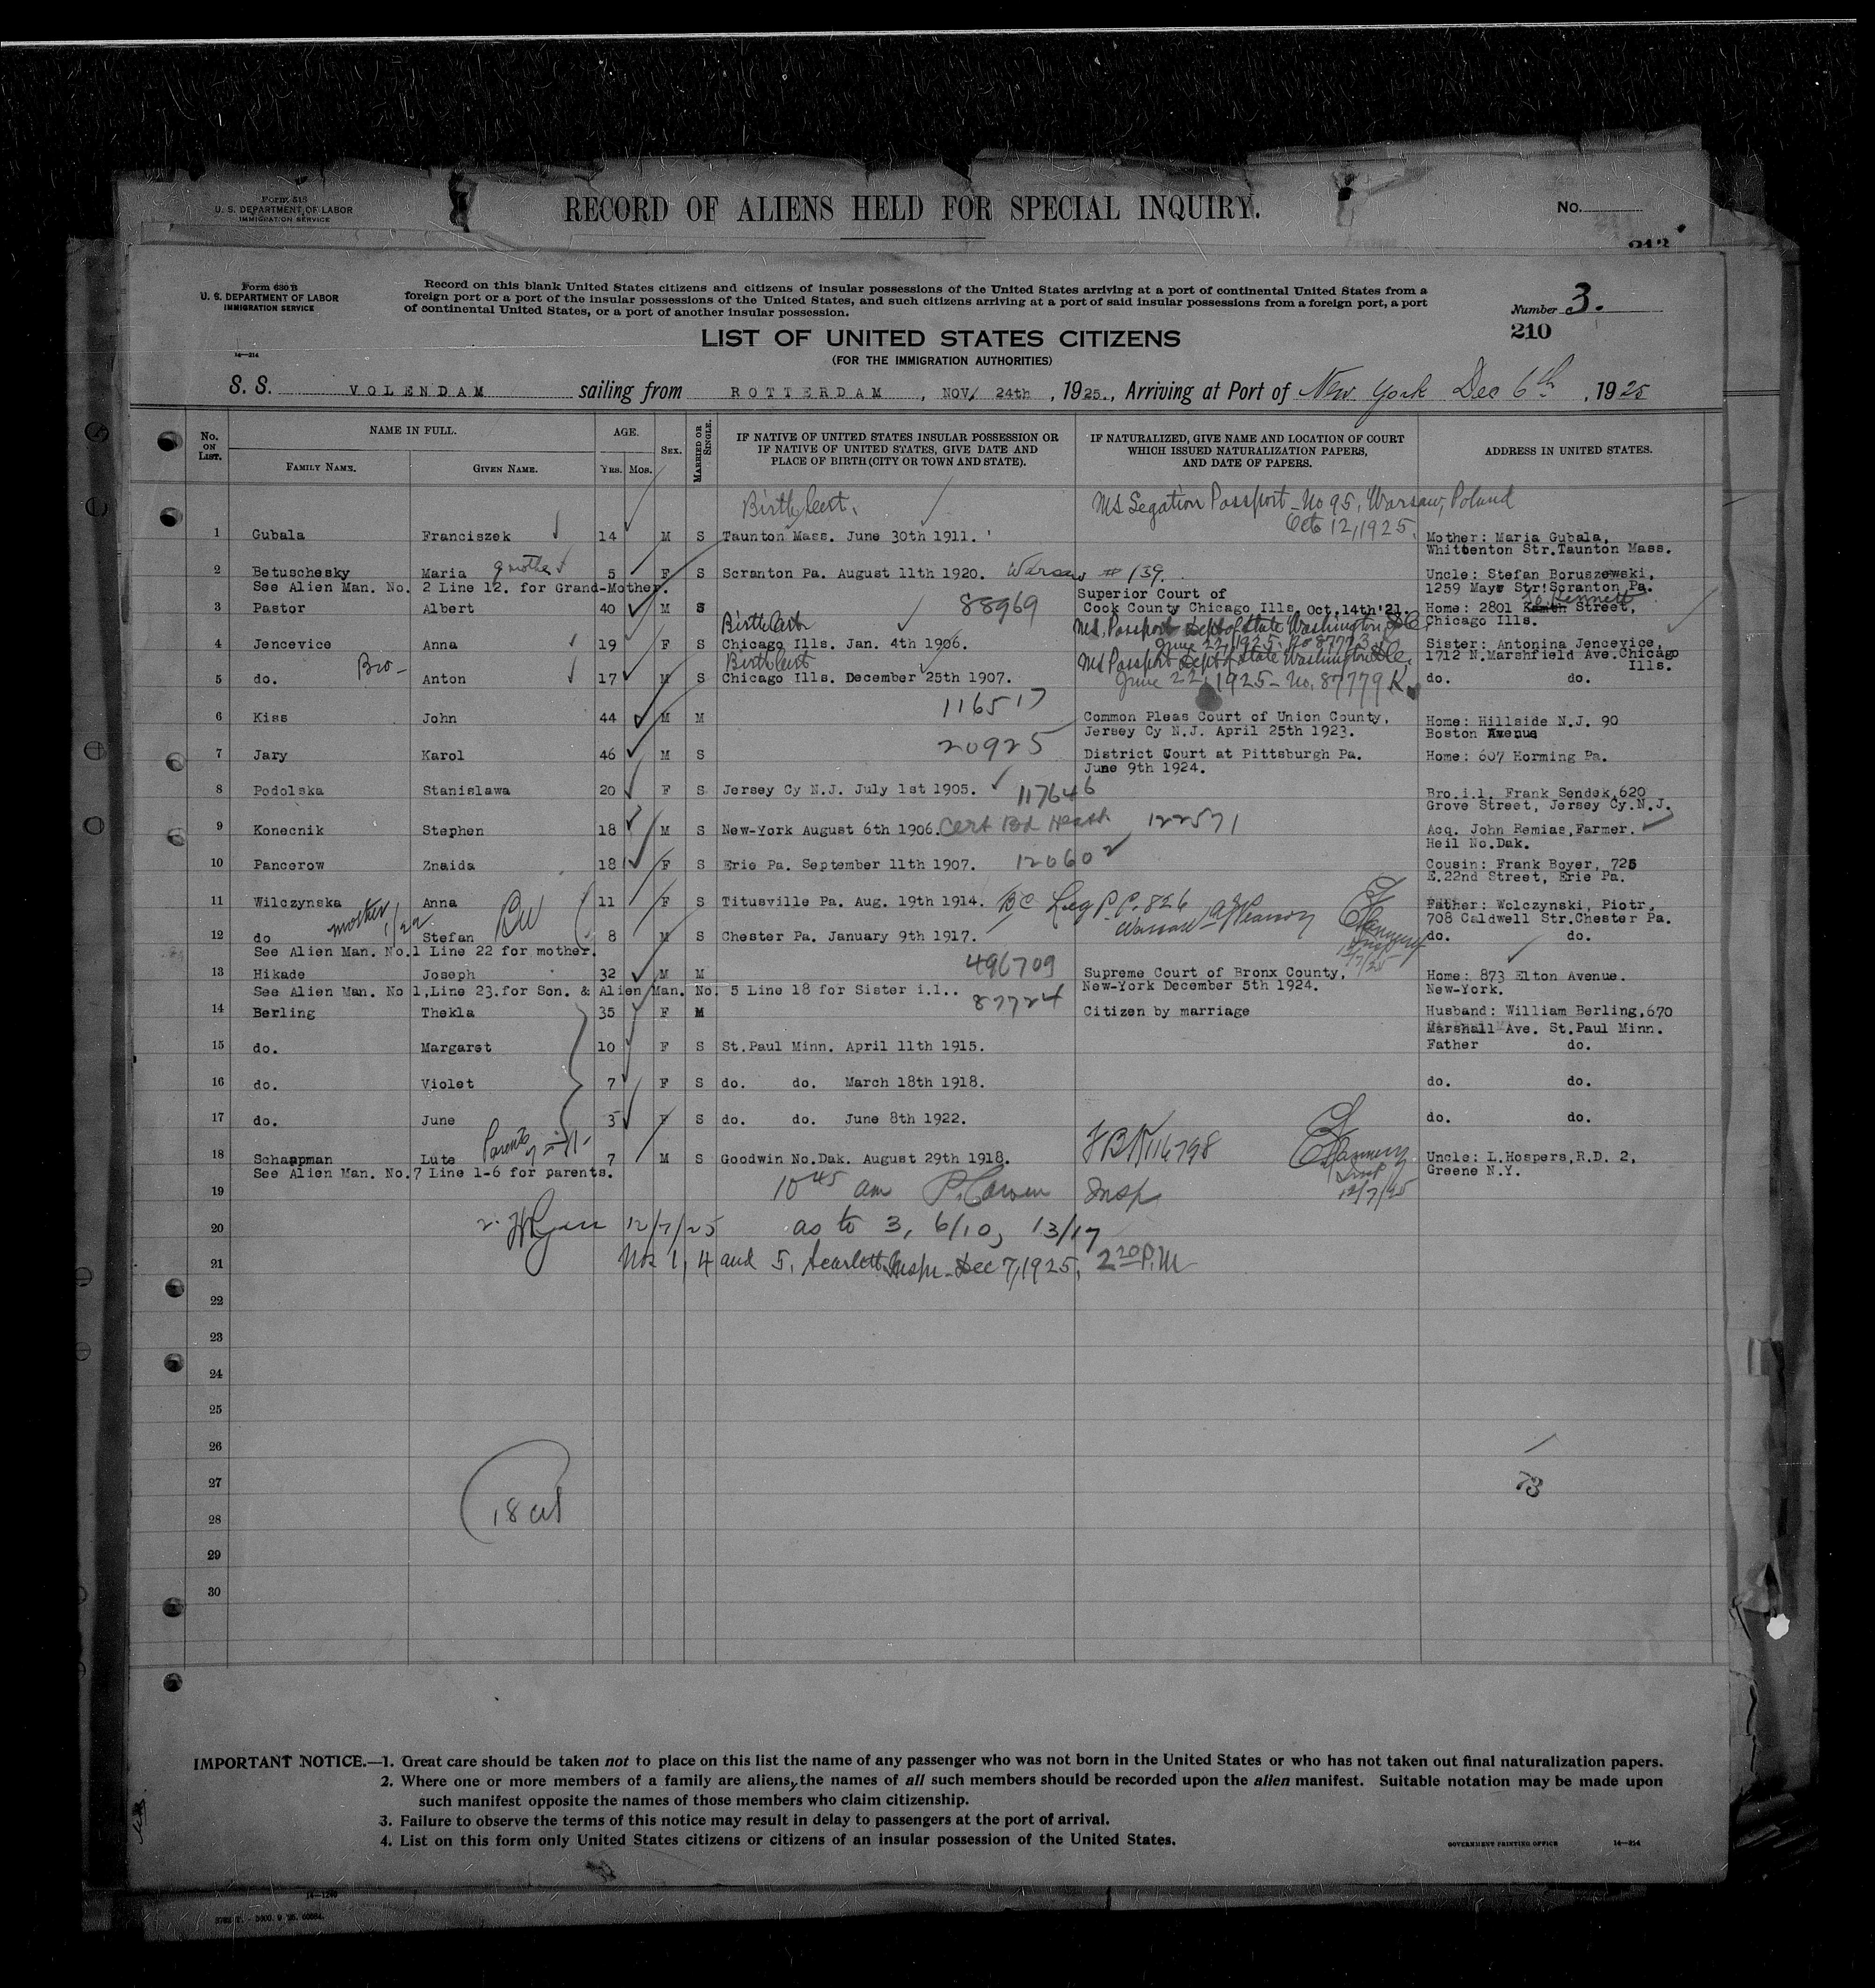 Form 515
U. S. DEPARTMENT OF LABOR
IMMIGRATION SERVICE
RECORD OF ALIENS HELD FOR SPECIAL INQUIRY.
No.
Form 630 B
U. S. DEPARTMENT OF LABOR
IMMIGRATION SERVICE
Record on this blank United States citizens and citizens of insular possessions of the United States arriving at a port of continental United States from a
foreign port or a port of the insular possessions of the United States, and such citizens arriving at a port of said insular possessions from a foreign port, a port
of continental United States, or a port of another insular possession.
Number 3.
210
LIST OF UNITED STATES CITIZENS
(FOR THE IMMIGRATION AUTHORITIES)
14—214
S. S. VOLENDAM sailing from ROTTERDAM, NOV/ 24th, 1925., Arriving at Port of New York Dec 6th, 1925
No. ON LIST.
NAME IN FULL.
FAMILY NAME. GIVEN NAME.
AGE.
YRS. MOS.
SEX.
MARRIED OR SINGLE.
IF NATIVE OF UNITED STATES INSULAR POSSESSION OR
IF NATIVE OF UNITED STATES, GIVE DATE AND
PLACE OF BIRTH (CITY OR TOWN AND STATE).
IF NATURALIZED, GIVE NAME AND LOCATION OF COURT
WHICH ISSUED NATURALIZATION PAPERS,
AND DATE OF PAPERS.
ADDRESS IN UNITED STATES.
Birth Cert. Passport - No 95, Warsaw, Poland
Oct 12, 1925.
1 Gubala Franciszek 14 M S Taunton Mass. June 30th 1911. Mother: Maria Gubala,
Whittenton Str. Taunton Mass.
2 Betuschesky Maria g mother 5 F S Scranton Pa. August 11th 1920. Warsaw # 139. Uncle: Stefan Boruszewski,
See Alien Man. No. 2 Line 12. for Grand-Mother. 1259 Mayr Str. Scranton Pa.
3 Pastor Albert 40 M S 88969 Superior Court of
Cook County Chicago Ills. Oct. 14th '21. Home: 2801 Kennett Street,
Chicago Ills.
Birth Cert Passport Dept of State Washington DC.
4 Jencevice Anna 19 F S Chicago Ills. Jan. 4th 1906. June 22, 1925. No 87773 Sister: Antonina Jencevice,
1712 N. Marshfield Ave. Chicago
Ills.
Bro- Birth Cert Passport Dept of State Washington DC.
5 do. Anton 17 M S Chicago Ills. December 25th 1907. June 22, 1925 - No. 87779 K do. do.
6 Kiss John 44 M M 116517 Common Pleas Court of Union County,
Jersey Cy N.J. April 25th 1923. Home: Hillside N.J. 90
Boston Avenue
7 Jary Karol 46 M S 20925 District Court at Pittsburgh Pa.
June 9th 1924. Home: 607 Horming Pa.
8 Podolska Stanislawa 20 F S Jersey Cy N.J. July 1st 1905. 117646 Bro.i.l. Frank Sendek, 620
Grove Street, Jersey Cy. N.J.
9 Konecnik Stephen 18 M S New-York August 6th 1906. Cert Bd Heath 122571 Acq. John Remias, Farmer.
Heil No.Dak.
10 Pancerow Znaida 18 F S Erie Pa. September 11th 1907. 120602 Cousin: Frank Boyer, 725
E. 22nd Street, Erie Pa.
11 Wilczynska Anna 11 F S Titusville Pa. Aug. 19th 1914. BC Leg P.P. 826 Father: Wolczynski, Piotr,
708 Caldwell Str. Chester Pa.
mother 1/22 Warsaw
12 do Stefan 8 M S Chester Pa. January 9th 1917. do. do.
See Alien Man. No.1 Line 22 for mother. 12/7/25
13 Hikade Joseph 32 M M 496709 Supreme Court of Bronx County,
New-York December 5th 1924. Home: 873 Elton Avenue.
New-York.
See Alien Man. No 1, Line 23. for Son. & Alien Man. No. 5 Line 18 for Sister i.l..
14 Berling Thekla 35 F M 87724 Citizen by marriage Husband: William Berling, 670
Marshall Ave. St.Paul Minn.
15 do. Margaret 10 F S St.Paul Minn. April 11th 1915. Father do.
16 do. Violet 7 F S do. do. March 18th 1918. do. do.
17 do. June 3 F S do. do. June 8th 1922. do. do.
Parents
18 Schaapman Lute 7 M S Goodwin No.Dak. August 29th 1918. 116798 Uncle: L. Hospers, R.D. 2,
Greene N.Y.
See Alien Man. No.7 Line 1-6 for parents. 12/7/25
19 10 45 am Insp
20 12/7/25 as to 3, 6/10, 13/17
21 Nos 1, 4 and 5, Scarlett Insp. Dec 7, 1925, 2 20 P.M
22
23
24
25
26
27 73
28 18
29
30
IMPORTANT NOTICE.—1. Great care should be taken not to place on this list the name of any passenger who was not born in the United States or who has not taken out final naturalization papers.
2. Where one or more members of a family are aliens, the names of all such members should be recorded upon the alien manifest. Suitable notation may be made upon
such manifest opposite the names of those members who claim citizenship.
3. Failure to observe the terms of this notice may result in delay to passengers at the port of arrival.
4. List on this form only United States citizens or citizens of an insular possession of the United States.
GOVERNMENT PRINTING OFFICE 14—214